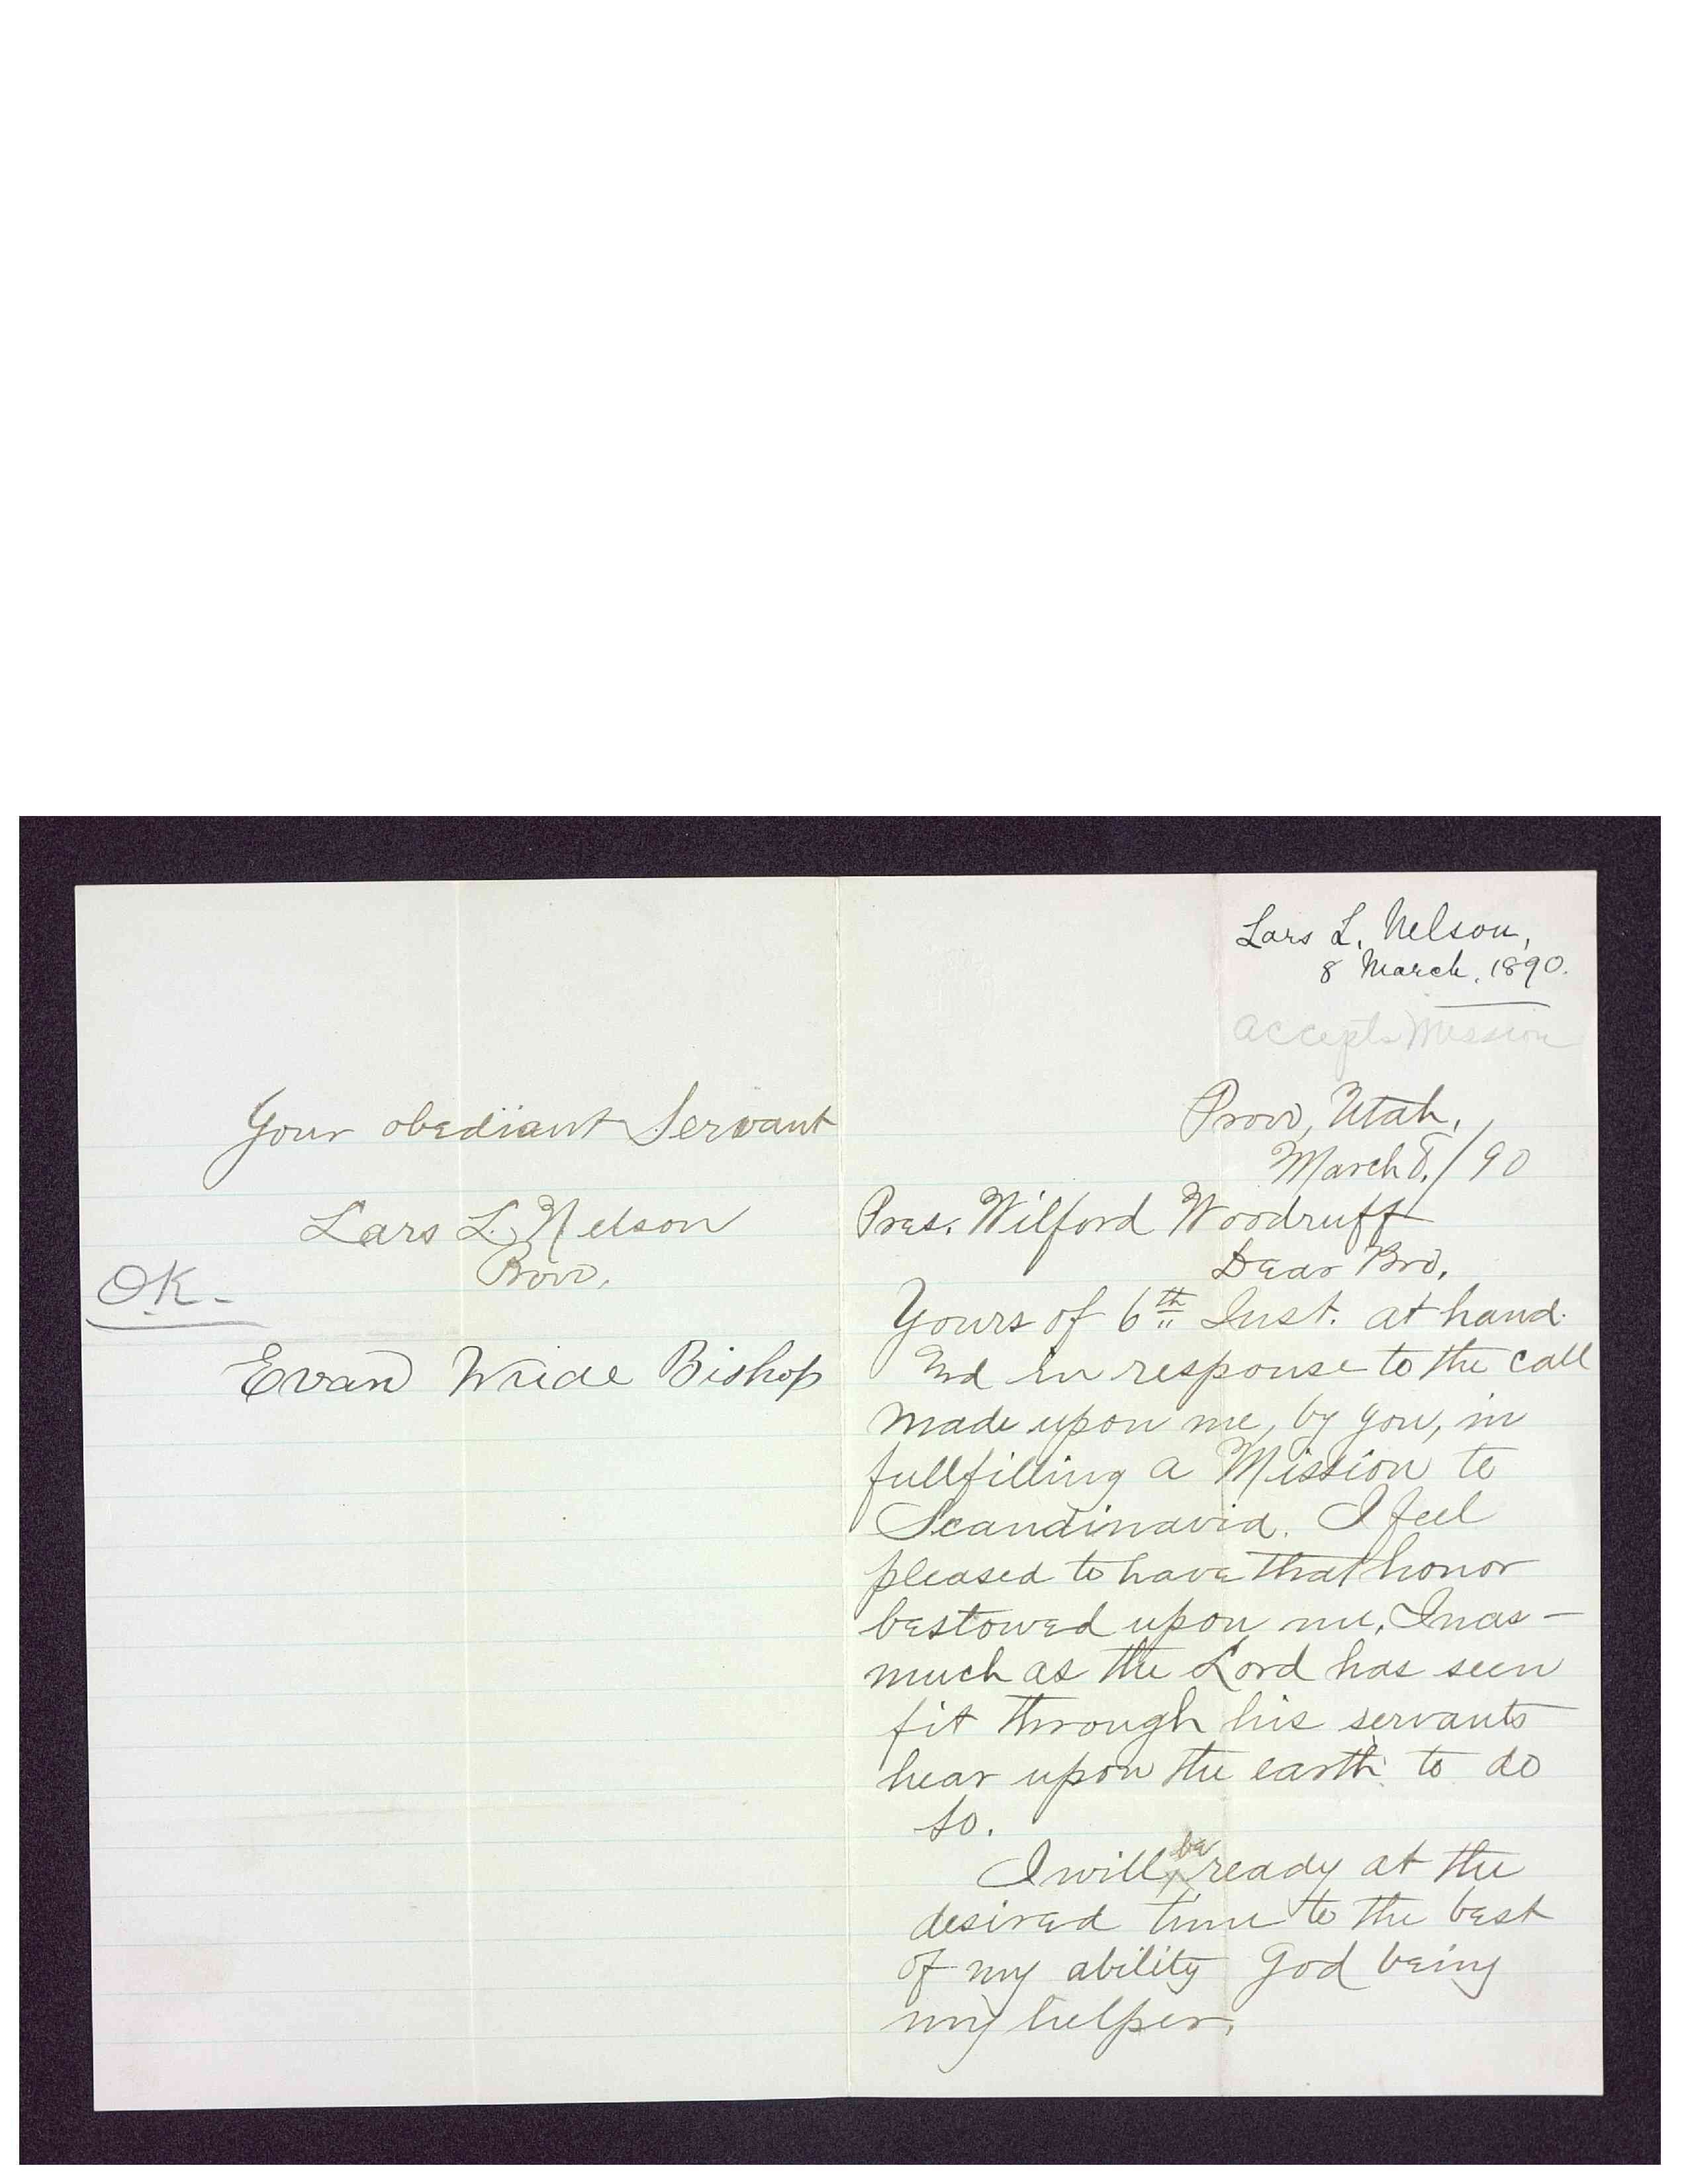 Lars L. Nelson,
8 March, 1890.
Accepts Mission
Provo, Utah,
March 8./90
Pres. Wilford Woodruff
Dear Bro.
Yours of 6th Inst. at hand.
And in response to the call
made upon me, by you, in
fullfilling a Mission to
Scandinavia. I feel
pleased to have that honor
bestowed upon me, Inas-
much as the Lord has seen
fit through his servants
hear upon the earth to do
so.
I will be ready at the
desired time to the best
of my ability God being
my helper.
Your obediant Servant
Lars L. Nelson
Provo,
OK.
Evan Wride Bishop